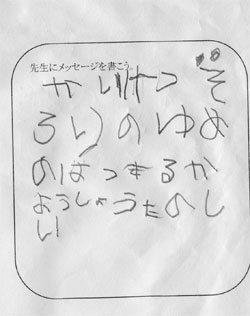 先生にメッセージを書こう。
かいけつぞ
ろりのゆめ
のはつきるか
ようしゃうたのし
い